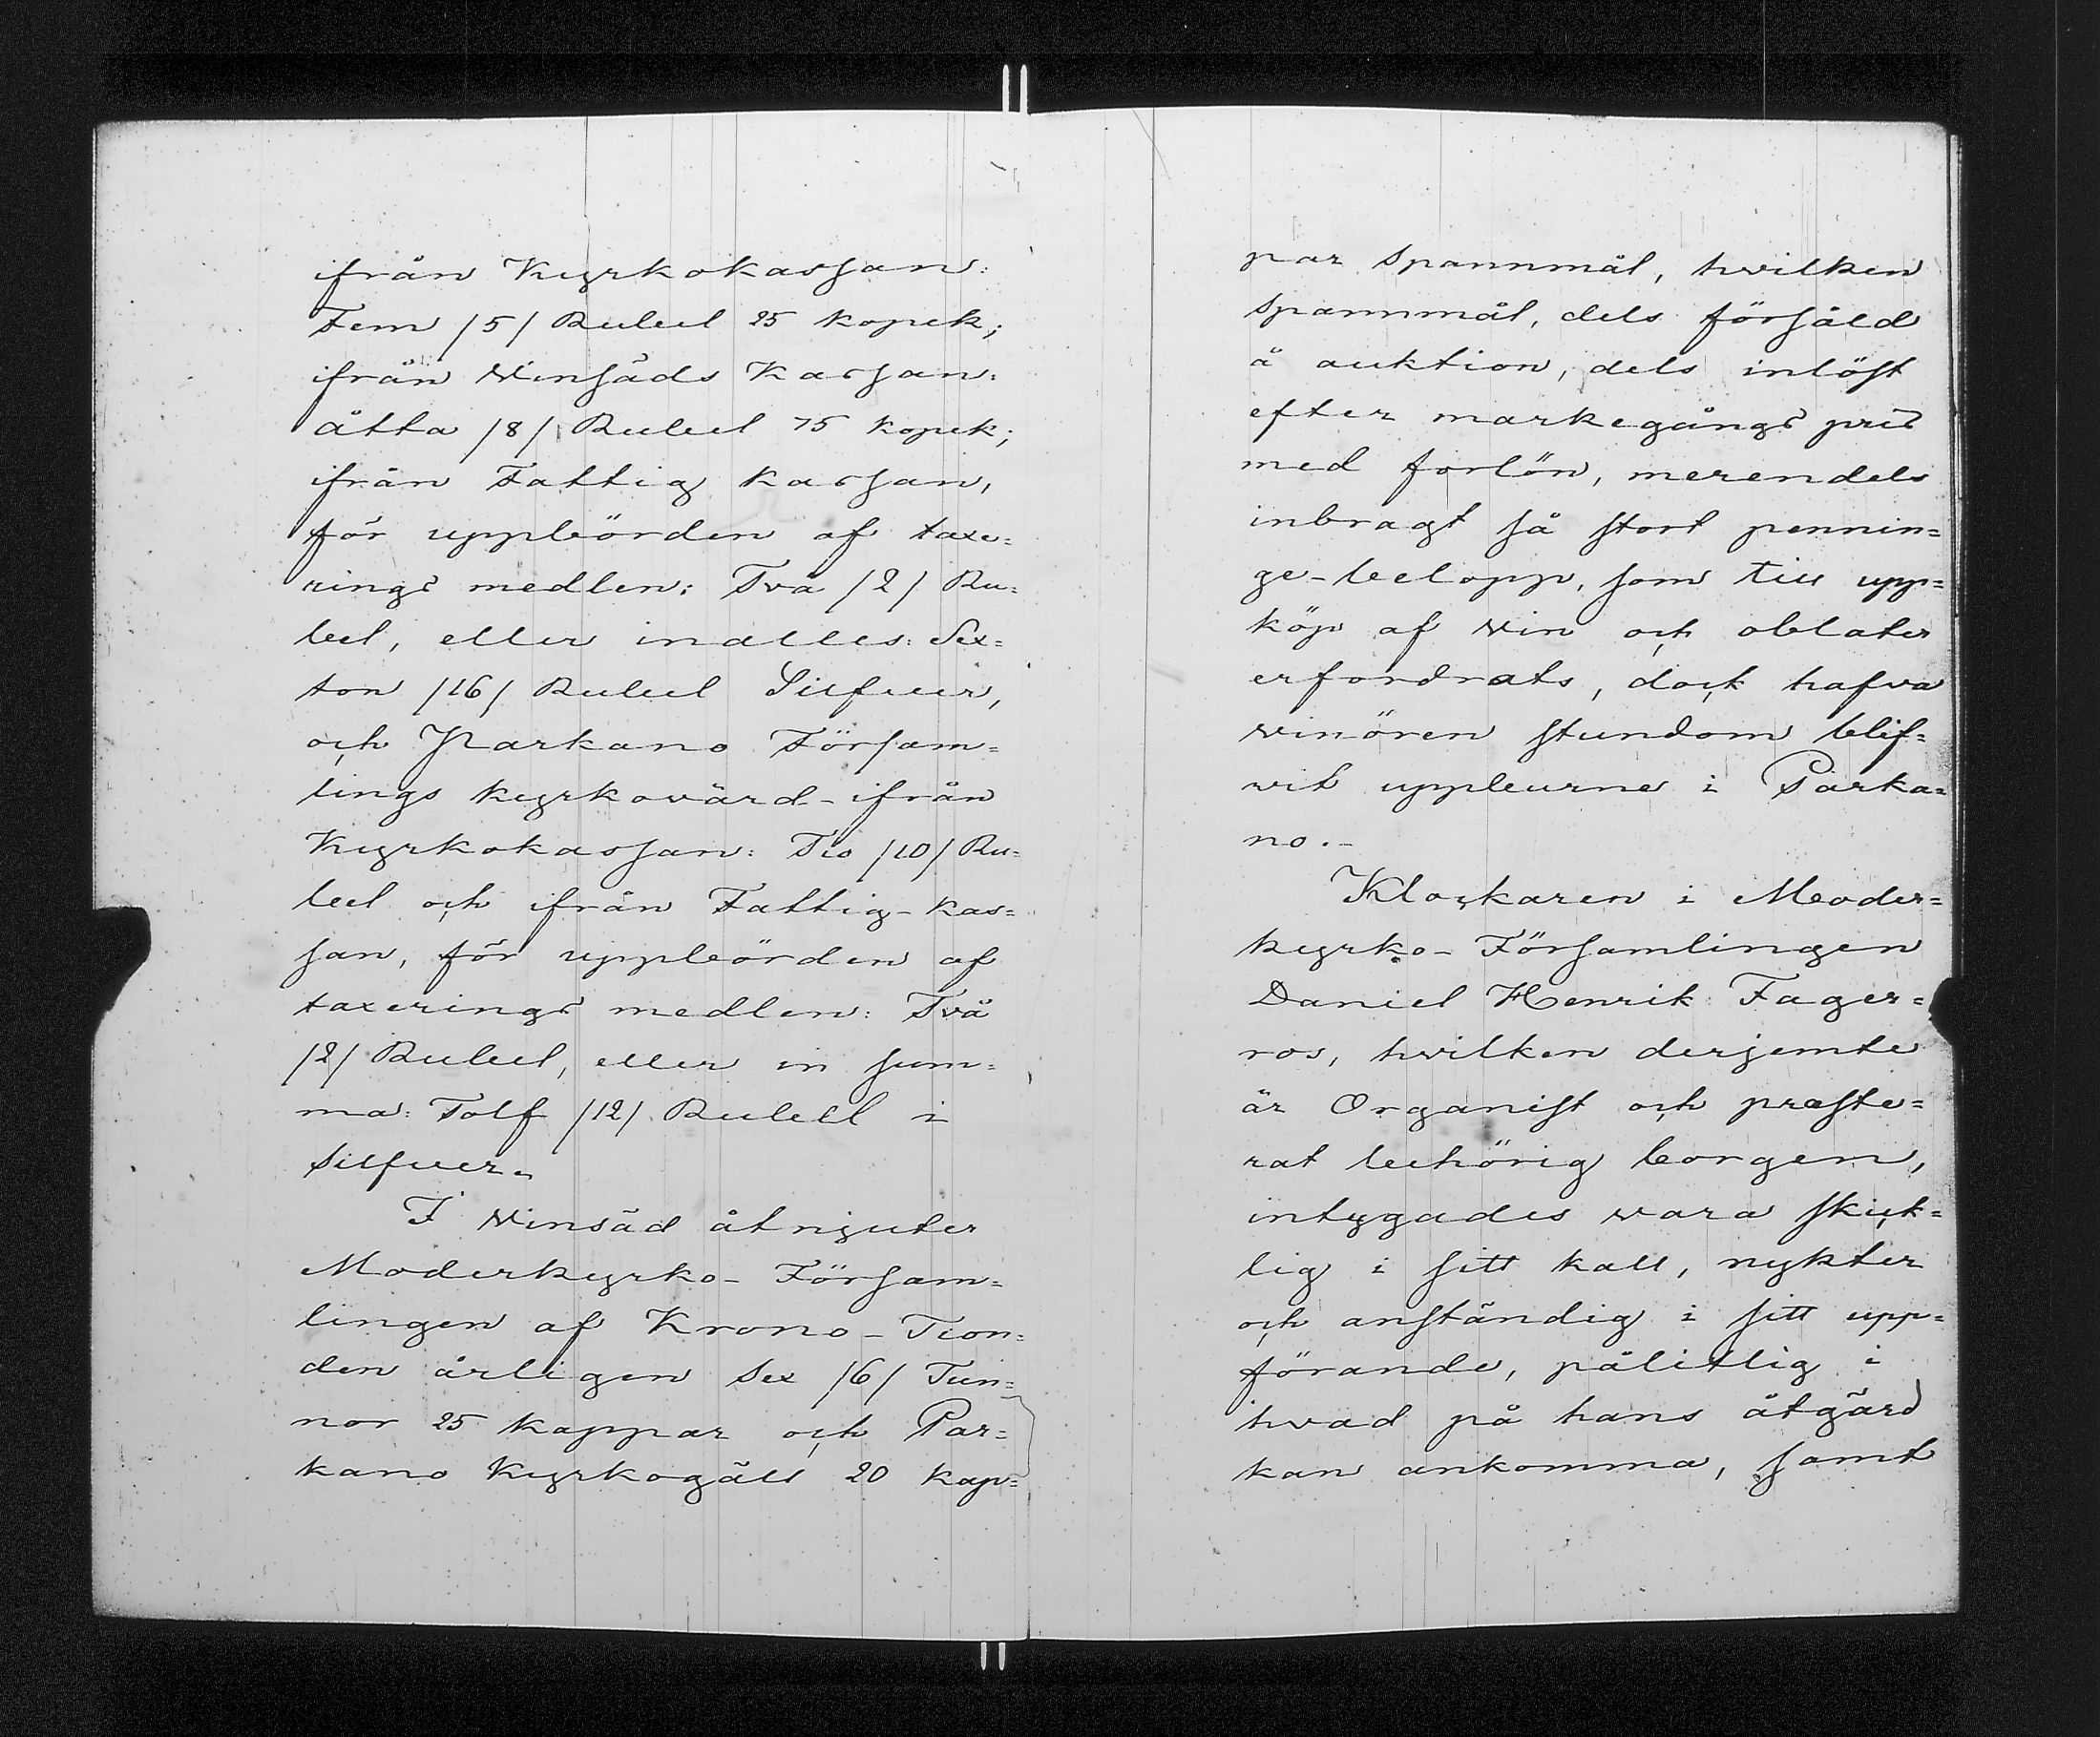 ifrån Kyrkokassan:
Fem /5/ Rubel 25 kopek;
ifrån Vinsäds Kassan:
åtta /8/ Rubel 75 kopek;
ifrån Fattig kassan,
för uppbörden af taxe=
rings medlen: Två /2/ Ru=
bel, eller inalles: Sex=
ton /16/ Rubel Silfver,
och Parkano Försam=
lings kyrkovärd - ifrån
Kyrkokassan: Tio /10/ Ru=
bel och ifrån Fattig-kas=
san, för uppbörden af
taxerings medlen: Två
/2/ Rubel, eller in sum=
ma: Tolf /12/ Rubel i
Silfver.
I Vinsäd åtnjuter
Moderkyrko- Försam=
lingen af Krono-Tion=
den årligen Sex /6/ Tun=
nor 25 kappar och Par=
kano Kyrkogäll 20 kap=
par Spannmål, hvilken
Spannmål, dels försåld
å auktion, dels inlöst
efter markegångs pris
med forlön, merendels
inbragt så stort pennin=
ge-belopp, som till upp=
köp af vin och oblater
erfordrats, dock hafva
vinören stundom blif=
vit uppburne i Parka=
no.-
Klockaren i Moder=
kyrko- Församlingen
Daniel Henrik Fager=
ros, hvilken derjemte
är Organist och preste=
rat behörig borgen,
intygades vara skick=
lig i sitt kall, nykter
och anständig i sitt upp=
förande, pålitlig i
hvad på hans åtgärd
kan ankomma, samt